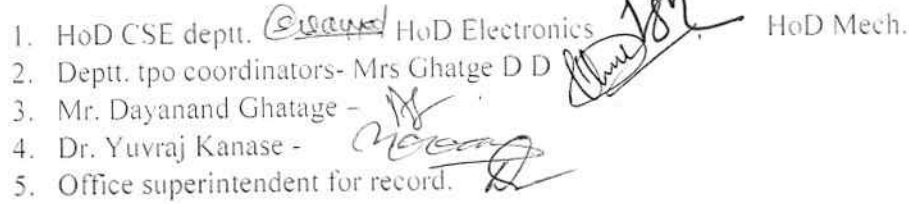 1. HoD CSE deptt. HoD Electronics HoD Mech.
2. Deptt. tpo coordinators- Mrs Ghatge D D
3. Mr. Dayanand Ghatage –
4. Dr. Yuvraj Kanase -
5. Office superintendent for record.